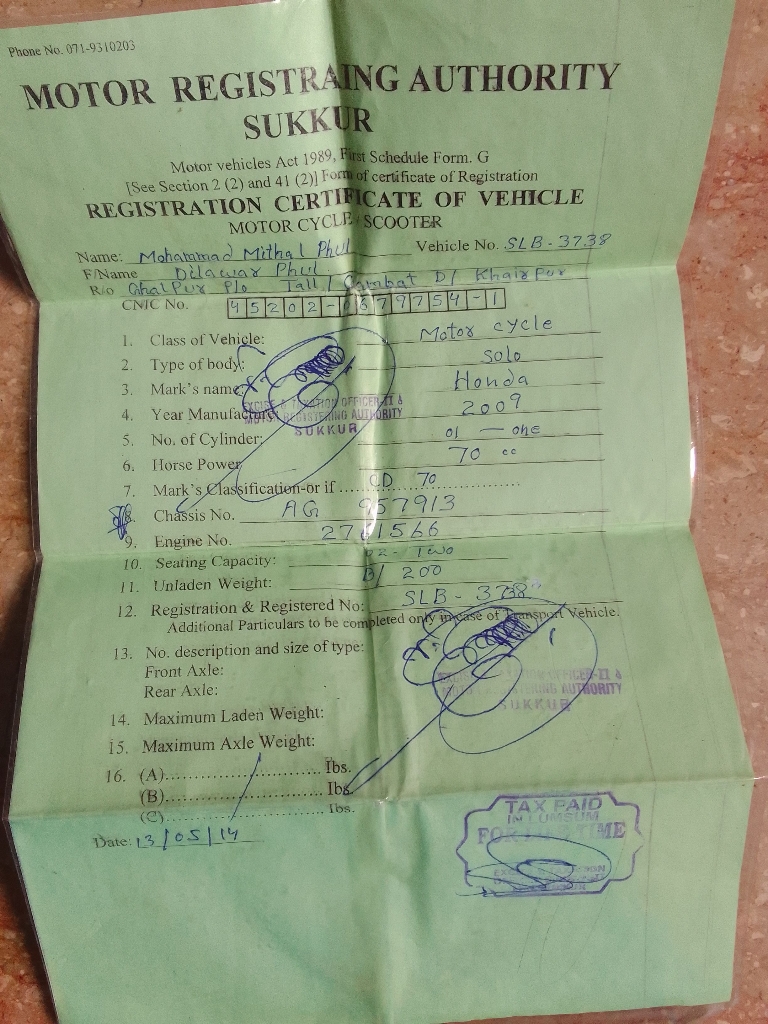 Phone No. 071-9310203
MOTOR REGISTRAING AUTHORITY
SUKKUR
Motor vehicles Act 1989, First Schedule Form. G
[See Section 2 (2) and 41 (2)] Form of certificate of Registration
REGISTRATION CERTIFICATE OF VEHICLE
MOTOR CYCLE / SCOOTER
Name: Mohammad Mithal Phul Vehicle No. SLB-3738
F/Name Dilawar Phul
R/o Ghal Pur P/o Tall / Gambat D/ Khairpur
CNIC No. 45202-0679754-1
1. Class of Vehicle: Motor cycle
2. Type of body: Solo
3. Mark's name: Honda
4. Year Manufacture: 2009
5. No. of Cylinder: 01 — one
6. Horse Power 70 cc
7. Mark's Classification-or if CD 70
8. Chassis No. AG 957913
9. Engine No. 2761566
10. Seating Capacity: 02 - Two
11. Unladen Weight: B/ 200
12. Registration & Registered No: SLB - 3738
Additional Particulars to be completed only in case of Transport Vehicle.
13. No. description and size of type:
Front Axle:
Rear Axle:
14. Maximum Laden Weight:
15. Maximum Axle Weight:
16. (A)........................ Ibs.
(B)........................ Ibs.
(C)........................ Ibs.
Date: 13/05/14
EXCISE & TAXATION OFFICER-II &
MOTOR REGISTERING AUTHORITY
SUKKUR
EXCISE & TAXATION OFFICER-II &
MOTOR REGISTERING AUTHORITY
SUKKUR
TAX PAID
IN LUMSUM
FOR LIFE TIME